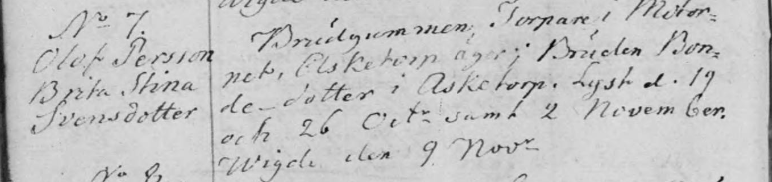 No 7.
Olof Persson
Brita Stina
Svensdotter
Brudgummen, Torpare i Motor=
net, Asketorp äger, Bruden Bon=
de-dotter i Asketorp. Lyst d. 19
och 26 Octr samt 2 November.
Wigde den 9 Novr
No 8